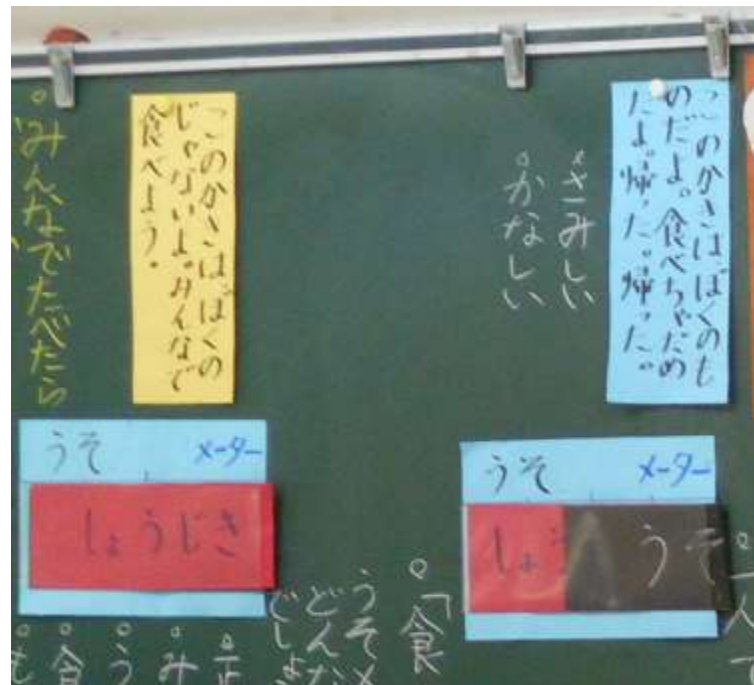 「このかきはぼくのも
のだよ。食べちゃだめ
だよ。帰った。帰った。
さみしい
かなしい
「このかきはぼくの
じゃないよ。みんなで
食べよう。
みんなでたべたら
うそ メーター
しょ うそ
うそ メーター
しょうじき
「食
うそメ
どんな
でしょ
正
み
う